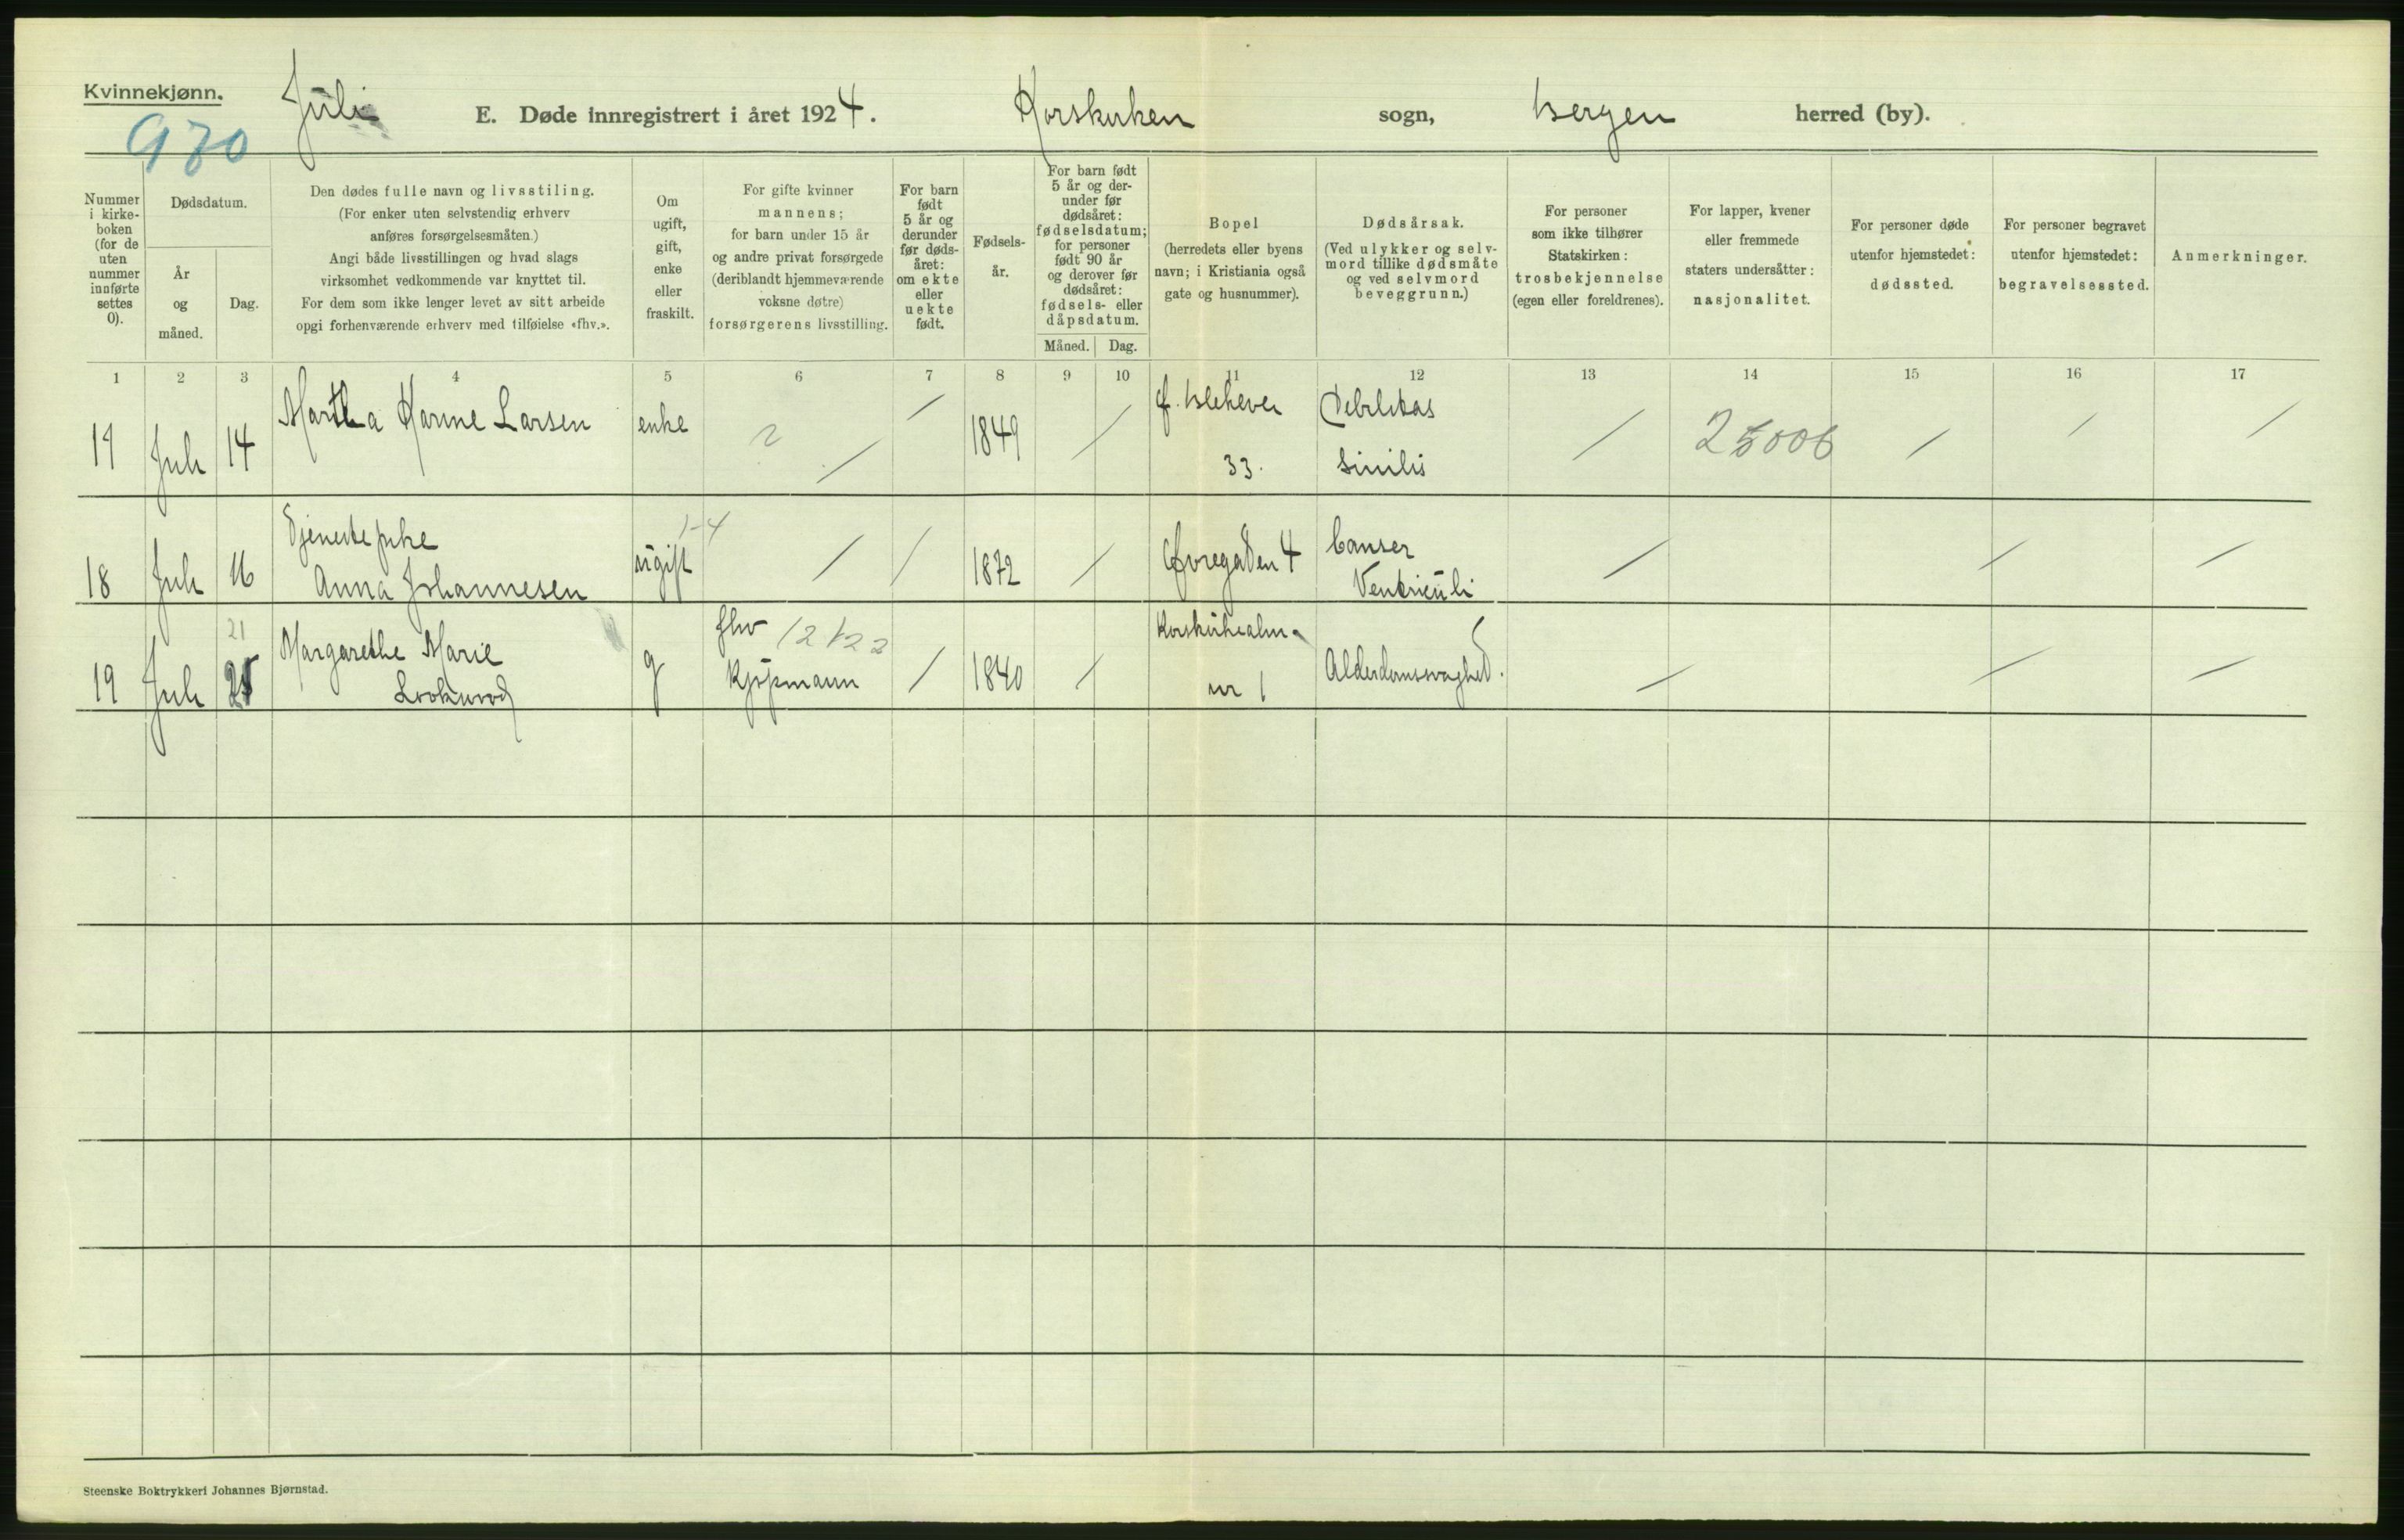 Kvinnekjønn.
Juli
E. Døde innregistrert i året 1924.
Korskirken sogn, Bergen herred (by).
970
Nummer i kirke- boken (for de uten nummer innførte settes 0).
Dødsdatum.
År og måned.
Dag.
Den dødes fulle navn og livsstiling.
(For enker uten selvstendig erhverv
anføres forsørgelsesmåten.)
Angi både livsstillingen og hvad slags
virksomhet vedkommende var knyttet til.
For dem som ikke lenger levet av sitt arbeide
opgi forhenværende erhverv med tilføielse «fhv.».
Om
ugift,
gift,
enke
eller
fraskilt.
For gifte kvinner
mannens;
for barn under 15 år
og andre privat forsørgede
(deriblandt hjemmeværende
voksne døtre)
forsørgerens livsstilling.
For barn
født
5 år og
derunder
før døds-
året:
om ekte
eller
uekte
født.
Fødsels-
år.
For barn født
5 år og der-
under før
dødsåret:
fødselsdatum;
for personer
født 90 år
og derover før
dødsåret:
fødsels- eller
dåpsdatum.
Måned. Dag.
Bopel
(herredets eller byens
navn; i Kristiania også
gate og husnummer).
Dødsårsak.
(Ved ulykker og selv-
mord tillike dødsmåte
og ved selvmord
beveggrunn.)
For personer
som ikke tilhører
Statskirken:
trosbekjennelse
(egen eller foreldrenes).
For lapper, kvener
eller fremmede
staters undersåtter:
nasjonalitet.
For personer døde
utenfor hjemstedet:
dødssted.
For personer begravet
utenfor hjemstedet:
begravelsessted.
Anmerkninger.
1 2 3 4 5 6 7 8 9 10 11 12 13 14 15 16 17
Martha Karine Larsen
Debilitas
17 Juli 14 enke / / 1849 / 33. Sinilis / 25006 / / /
Tjenestepike 1-4 Canser
18 Juli 16 Anna Johannesen ugift / / 1872 / Øvregaden 4 Ventriculi / / /
21 Margarethe Marie fhv
19 Juli 21 g Kjøpmann / 1840 / nr 1 Alderdomssvaghed. / / /
Steenske Boktrykkeri Johannes Bjørnstad.